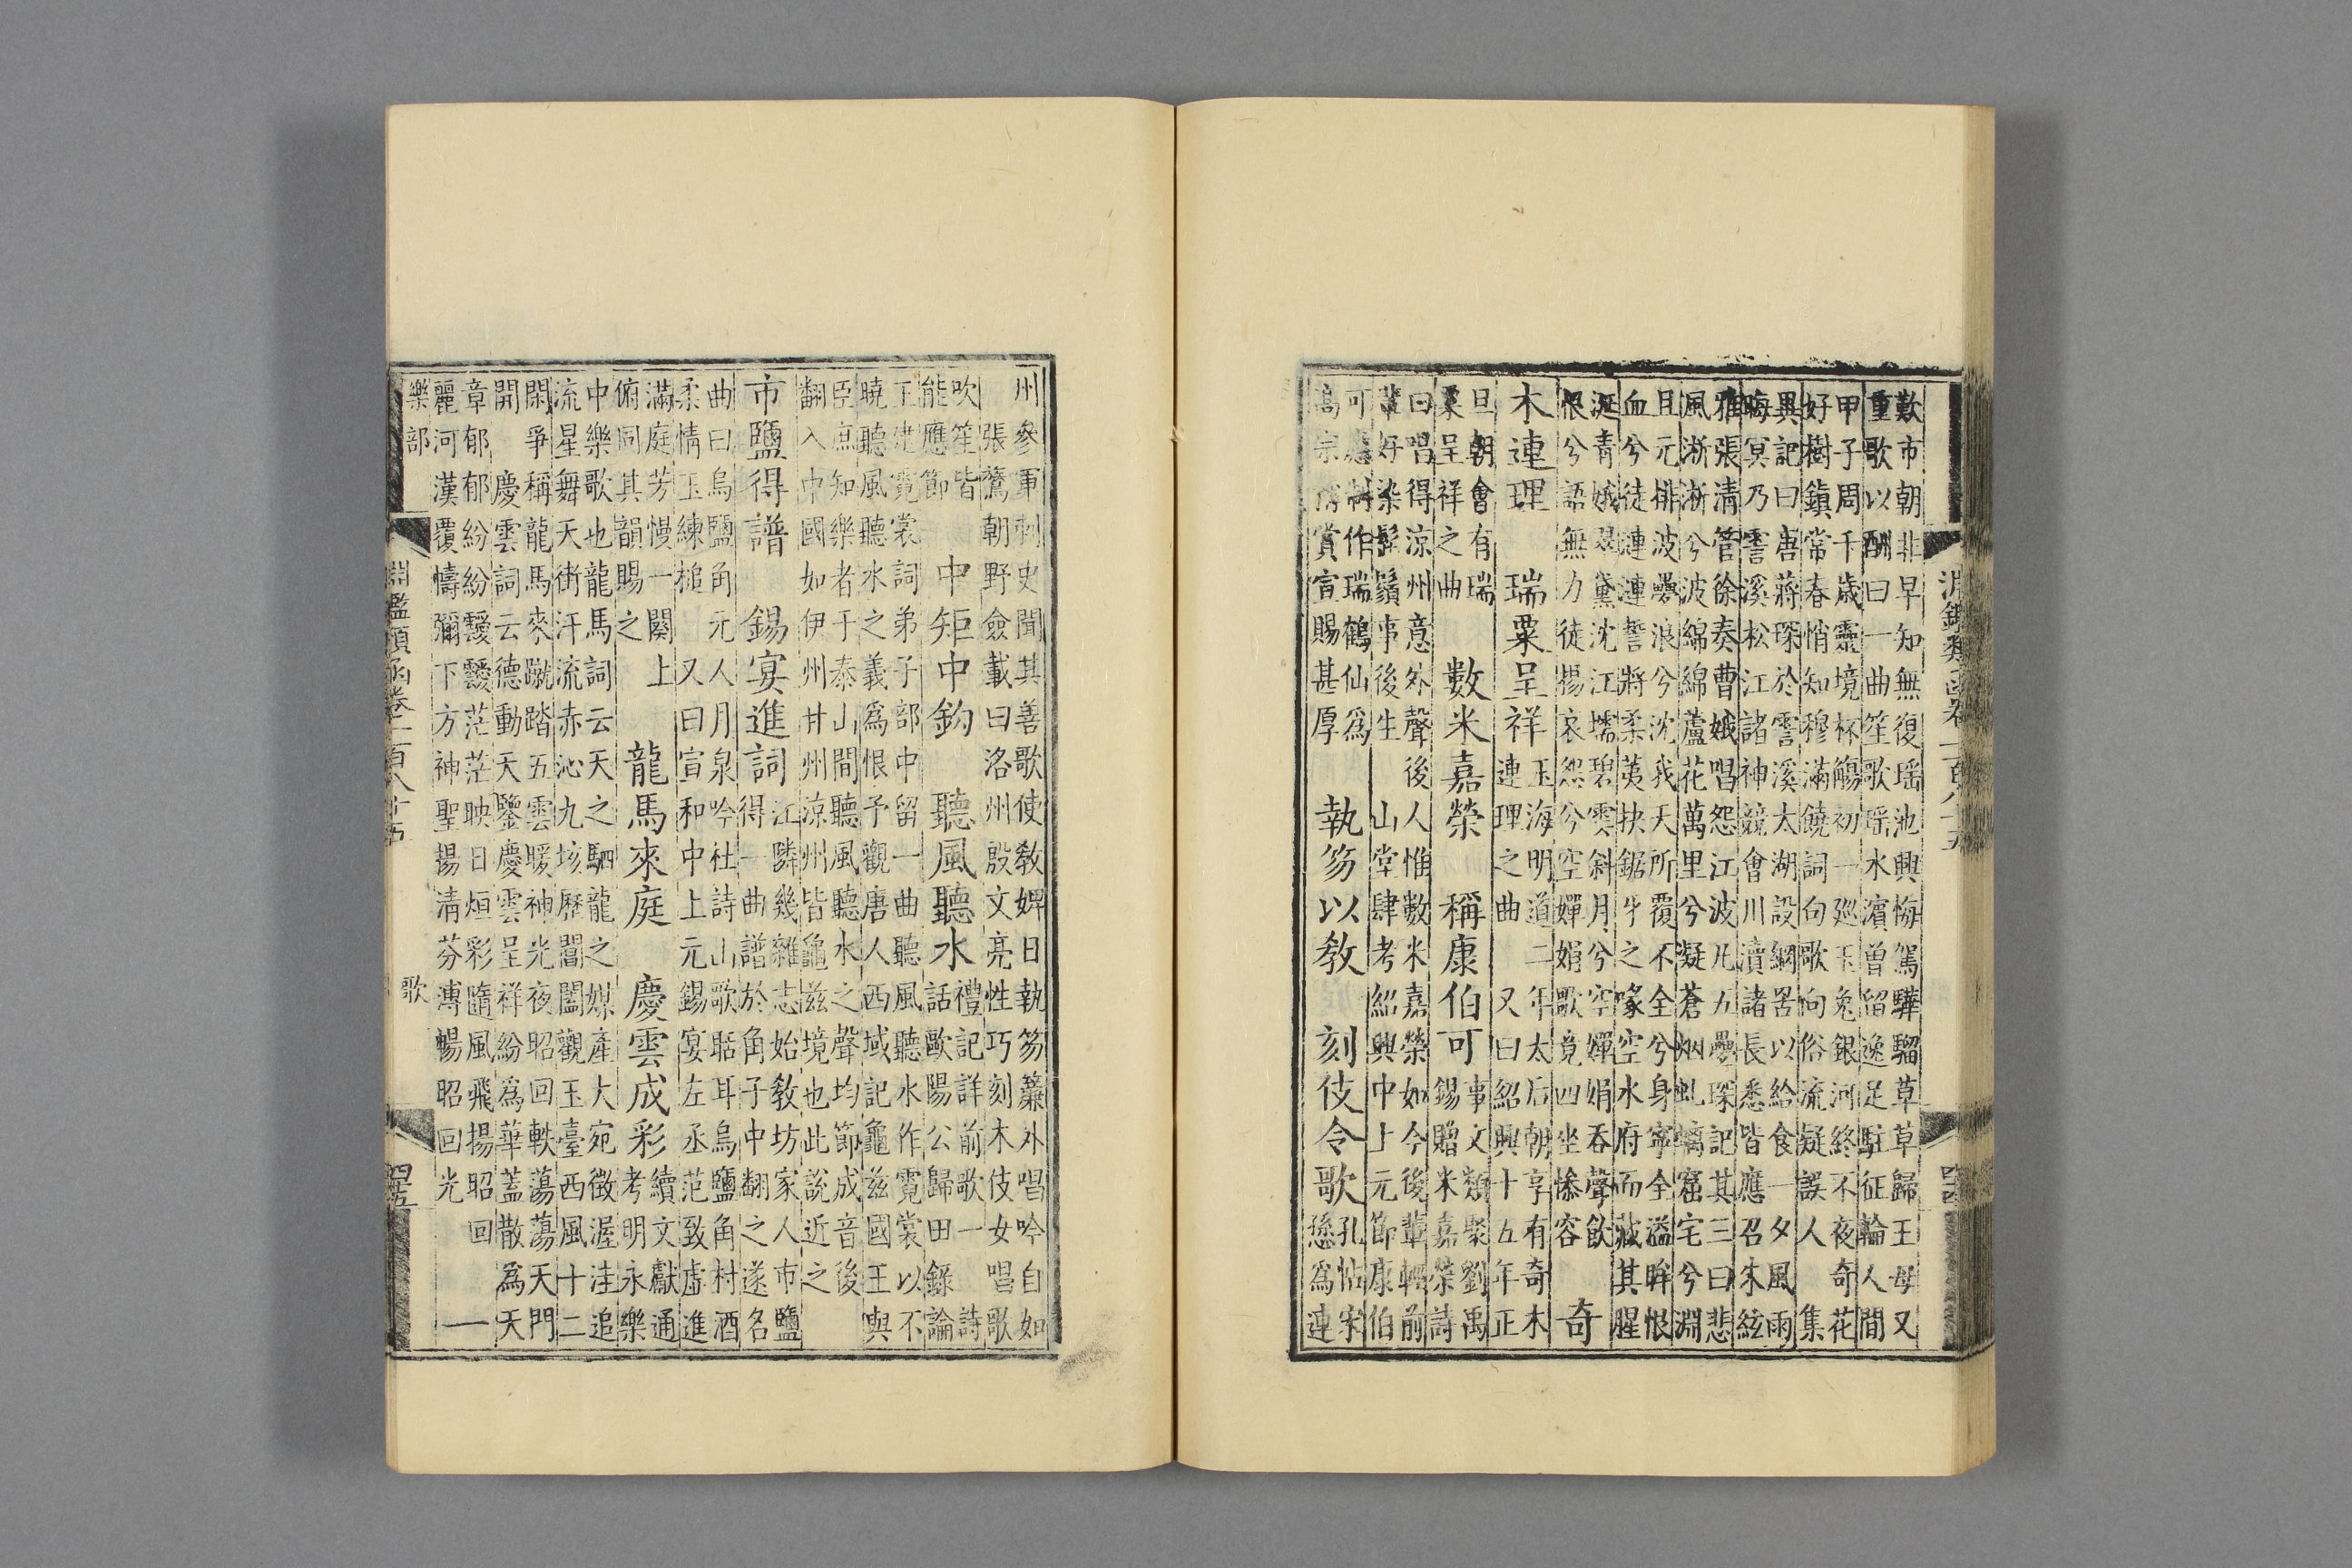 淵鑑類函卷一百八十五
四十四
歎市朝非早知無復瑶池興悔駕驊騮草草歸王母又
重歌以酬曰一曲笙歌瑶水濱曾留逸足駐征輪人間
甲子周千歳靈境杯觴初一廵玉兔銀河終不夜奇花
好樹鎭常春悄知穆滿饒詞句歌向俗流疑誤人　集
異記曰唐蔣琛於霅溪太湖設網罟以給食一夕風雨
晦冥乃霅溪松江諸神競會川瀆諸長悉皆應召朱絃
雅張清管徐奏曹娥唱怨江波凡五疊琛記其三曰悲
風淅淅兮波綿綿蘆花萬里兮凝蒼烟虬螭窟宅兮淵
且元排波疊浪兮沈我天所覆不全兮身寧全溢眸恨
血兮徒漣漣誓將柔荑抉鋸牙之喙空水府而藏其腥
涎青娥翠黛沈江壖碧雲斜月兮空嬋娟吞聲飲
恨兮語無力徒揚哀怨兮空嬋娟歌竟四坐慘容
奇
木連理　瑞粟呈祥
玉海明道二年太后朝享有奇木
連理之曲　又曰紹興十五年正
旦朝會有瑞
粟呈祥之曲
數米嘉榮　稱康伯可
事文類聚劉禹
錫贈米嘉榮詩
曰唱得涼州意外聲後人惟數米嘉榮如今後輩輕前
輩好染髭鬚事後生　山堂肆考紹興中上元節康伯
可應制作瑞鶴仙爲
高宗稱賞宣賜甚厚
執笏以教　刻伎令歌
孔帖宋
㥬爲連
州參軍刺史聞其善歌使教婢日執笏簾外唱吟自如
張鷟朝野僉載曰洛州殷文亮性巧刻木伎女唱歌
吹笙皆
能應節
中矩中鈎　聽風聽水
禮記詳前歌一　詩
話歐陽公歸田錄論
王建霓裳詞弟子部中留一曲聽風聽水作霓裳以不
曉聽風聽水之義爲恨予觀唐人西域記龜兹國王與
臣庶知樂者于泰山間聽風聽水之聲均節成音後
翻入中國如伊州甘州涼州皆龜兹境也此說近之
市鹽得譜　錫宴進詞
江隣幾雜志始教坊家人市鹽
得一曲譜於角子中翻之遂名
曲曰烏鹽角元人月泉吟杜詩山歌聒耳烏鹽角村酒
柔情玉練槌　又曰宣和中上元錫宴左丞范致虛進
滿庭芳慢一闋上
俯同其韻賜之
龍馬來庭　慶雲成彩
續文獻通
考明永樂
中樂歌也龍馬詞云天之駟龍之媒產大宛徵渥洼追
流星舞天街汗流赤沁九垓歷閶闔觀玉臺西風十二
閑爭稱龍馬來蹴踏五雲暖神光夜昭回軼蕩蕩天門
開　慶雲詞云德動天鑒慶雲呈祥紛爲華蓋散爲天
章郁郁紛紛靉靉茫茫映日烜彩隨風飛揚昭回
麗河漢覆幬彌下方神聖揚清芬溥暢昭回光　一
樂部
淵鑑類函卷一百八十五
歌
四十五